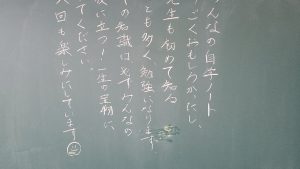 んなの自学ノート
ごくおもしろかったし、
先生も初めて知る
とも多く勉強になります
の知識は必ずみんなの
に立つ！一生の宝物に
てください。
回も楽しみにしています